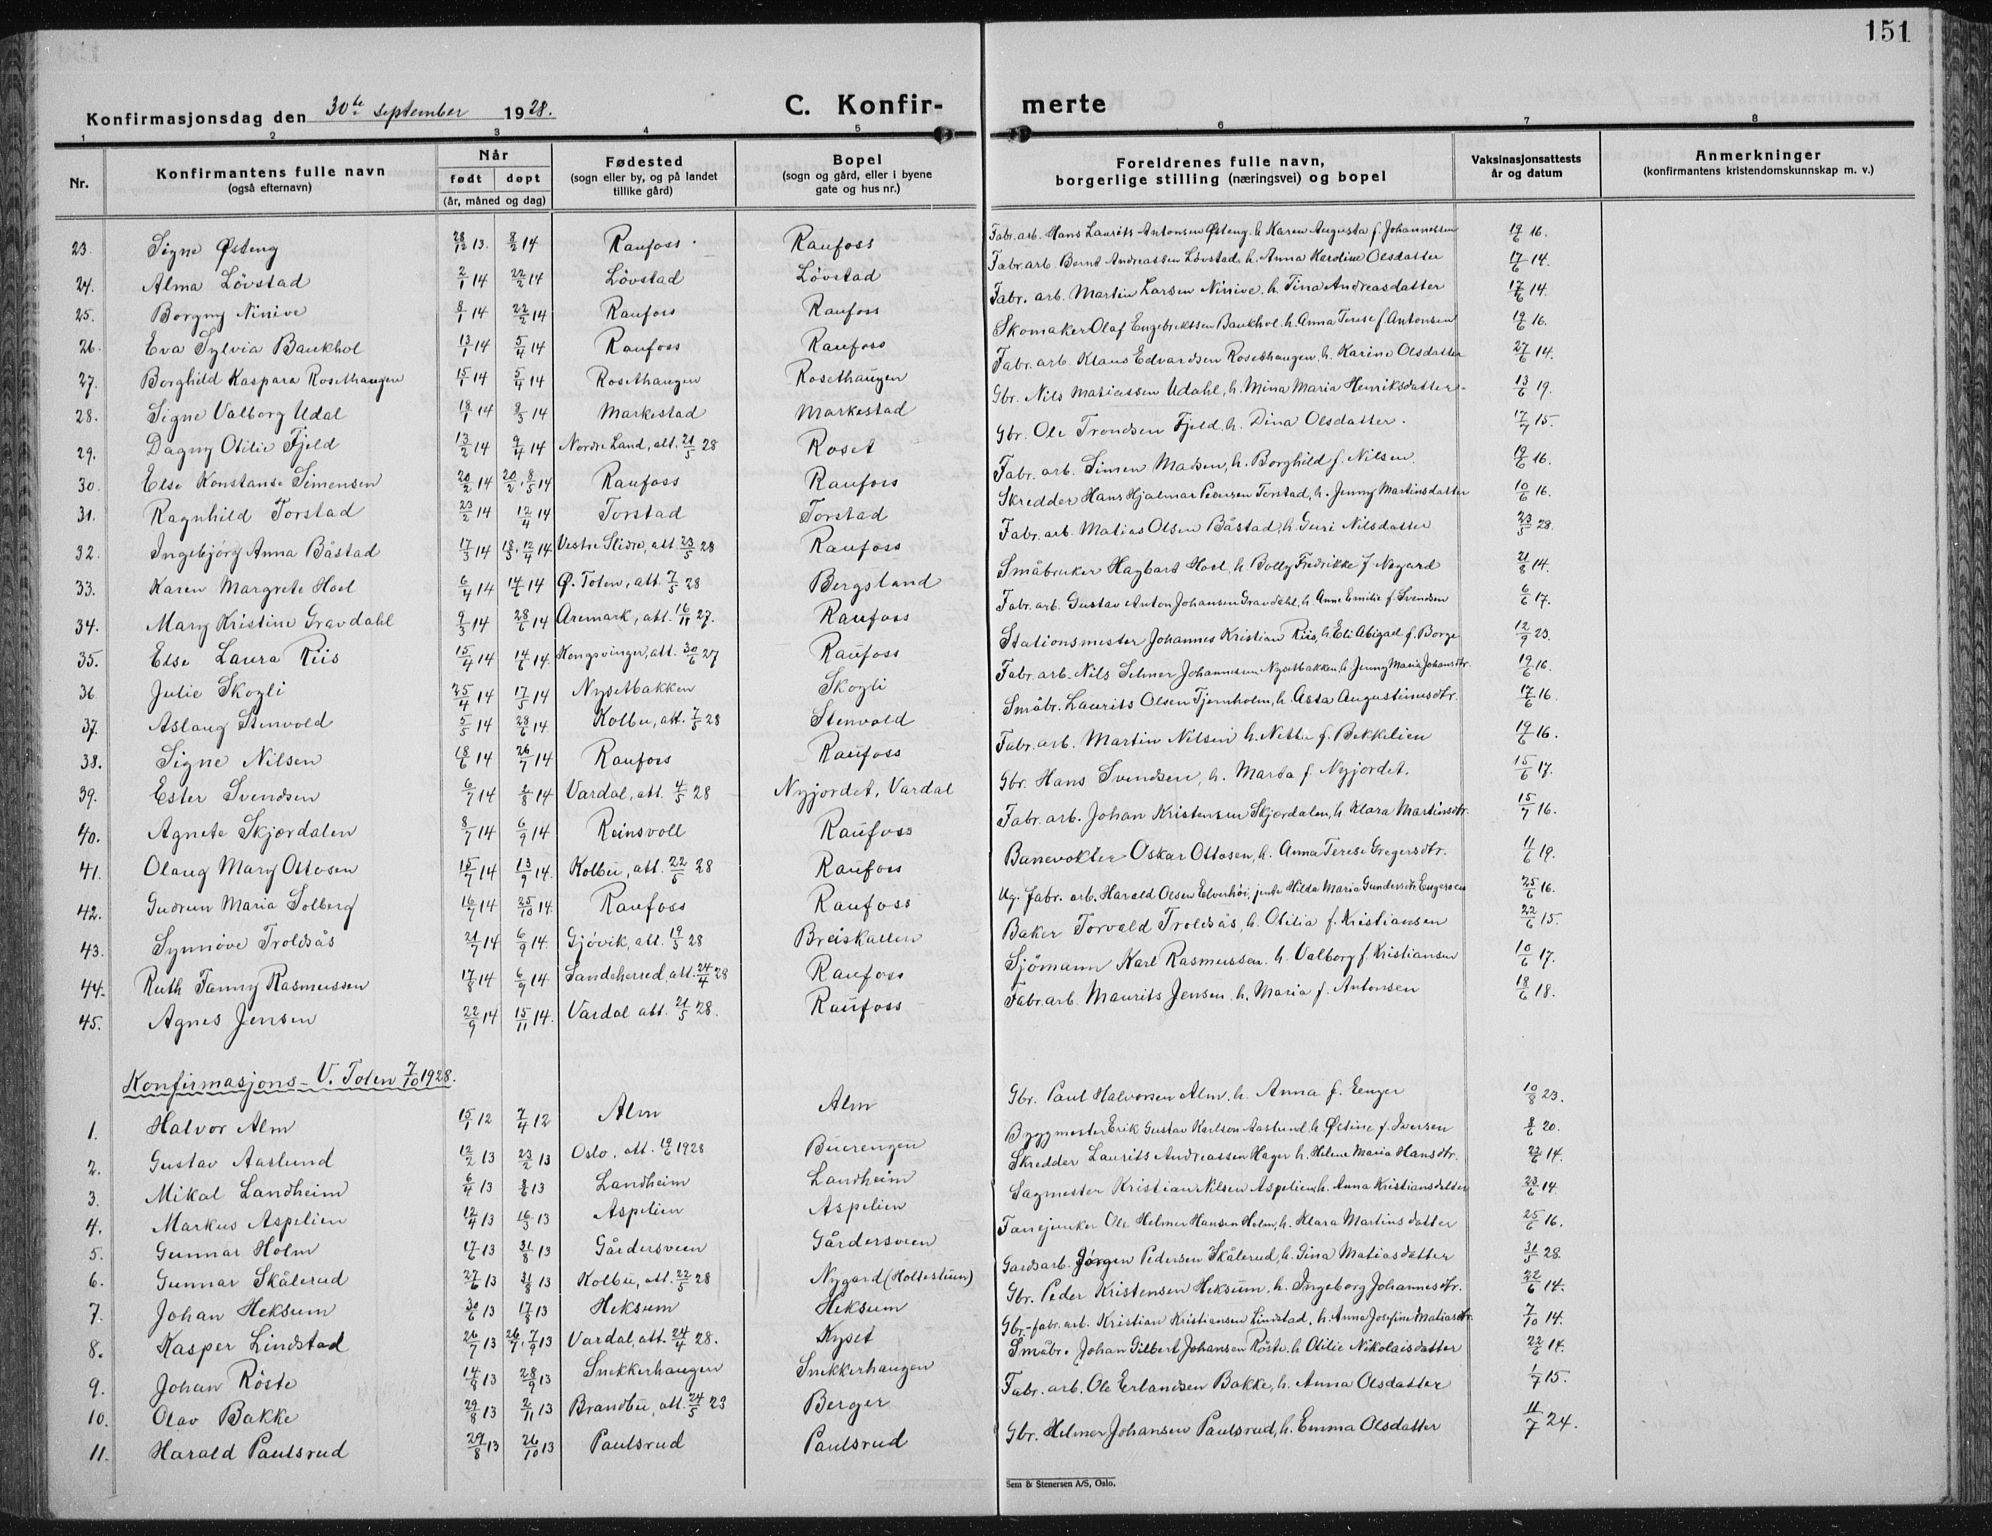 151
Konfirmasjonsdag den 30te september 1928. C. Konfir- merte
1 2 3 4 5 6 7 8
Nr. Konfirmantens fulle navn (også efternavn) Når født døpt (år, måned og dag) Fødested (sogn eller by, og på landet tillike gård) Bopel (sogn og gård, eller i byene gate og hus nr.) Foreldrenes fulle navn, borgerlige stilling (næringsvei) og bopel Vaksinasjonsattests år og datum Anmerkninger (konfirmantens kristendomskunnskap m. v.)
23. Signe Østeng 28/12 13. 8/2 14 Raufoss. Raufoss Fabr. arb. Hans Laurits Antonsen Østeng, h. Karen Augusta f. Johannessen 19/6 16.
24. Alma Lövstad 2/1 14 22/2 14 Lövstad Lövstad Fabr. arb. Bernt Andreassen Lövstad, h. Anna Karoline Olsdatter 17/6 14.
25. Borgny Ninive 8/1 14 22/2 14 Raufoss Raufoss Fabr. arb. Martin Larsen Ninive, h. Tina Andreasdatter 17/6 14.
26. Eva Sylvia Baukhol 13/1 14 5/4 14 Raufoss Raufoss Skomaker Olaf Engebrektsen Baukhol h. Anna Terese f. Antonsen 19/6 16.
27. Borghild Kaspara Rosethaugen 15/1 14 5/4 14 Rosethaugen Rosethaugen Fabr. arb. Klaus Edvardsen Rosethaugen, h. Karine Olsdatter 27/6 14.
28. Signe Valborg Udal 18/1 14 8/3 14 Markestad Markestad Gbr. Nils Matiassen Udahl, h. Mina Maria Henriksdatter 13/6 19.
29. Dagny Otilie Fjeld 13/2 14 9/4 14 Nordre Land, att. 21/5 28 Roset Gbr. Ole Trondsen Fjeld, h. Dina Olsdatter. 17/7 15.
30. Else Konstanse Simensen 20/2 14 20/2, 8/5 14 Raufoss Raufoss Fabr. arb. Simen Madsen, h. Borghild f. Nilsen. 19/6 16.
31. Ragnhild Torstad 23/2 14 12/4 14 Torstad Torstad Skredder Hans Hjalmar Pedersen Torstad, h. Jenny Martinsdatter 10/6 16.
32. Ingebjörg Anna Båstad 17/3 14 18/3, 12/4 14 Vestre Slidre, att. 23/5 28 Raufoss Fabr. arb. Matias Olsen Båstad, h. Guri Nilsdatter 23/5 28.
33. Karen Margrete Hoel 6/4 14 14/6 14 Ø. Toten, att. 7/5 28 Bergsland Småbruker Hagbart Hoel, h. Bolly Fredrikke f. Nygard 21/8 14.
34. Mary Kristine Gravdahl 9/3 14 28/6 14 Aremark, att. 16/11 27. Raufoss Fabr. arb. Gustav Anton Johansen Gravdahl, h. Anne Emilie f. Svendsen 6/6 17.
35. Else Laura Riis 15/4 14 14/6 14. Kongsvinger, att. 30/6 27 Raufoss Stationsmester Johannes Kristian Riis, h. Eli Abigael f. Borge 12/9 23.
36 Julie Skogli 25/4 14 17/5 14 Nysetbakken Skogli Fabr. arb. Nils Selmer Johannesen Nysetbakken, h. Jenny Maria Johansdtr. 19/6 16.
37. Aslaug Stenvold 5/5 14 28/6 14. Kolbu, att. 7/5 28 Stenvold Småbr. Laurits Olsen Tjernholm, h. Asta Augustinusdtr. 17/6 16.
38. Signe Nilsen 18/6 14 26/7 14 Raufoss Raufoss Fabr. arb. Martin Nilsen h. Netta f. Bekkelien 19/6 16.
39. Ester Svendsen 6/7 14 2/8 14 Vardal, att. 4/5 28 Nyjordet, Vardal Gbr. Hans Svendsen, h. Marta f. Nyjordet. 15/6 17.
40. Agnete Skjærdalen 8/7 14 6/9 14 Reinsvoll Raufoss Fabr. arb. Johan Kristensen Skjærdalen, h. Klara Martinsdtr. 15/7 16.
41. Olaug Mary Ottosen 15/7 14 13/9 14. Kolbu, att. 22/5 28 Raufoss Banevokter Oskar Ottosen, h. Anna Terese Gregersdtr. 11/6 19.
42. Gudrun Maria Solberg 16/7 14 25/10 14. Raufoss Raufoss Ug. fabr. arb. Harald Olsen Elverhöi, jente Hilda Maria Gundersdtr. 25/6 16.
43. Synnöve Troldsås 21/7 14 6/9 14. Gjövik, att. 19/5 28 Breiskallen Baker Torvald Troldsås, h. Otilia f. Kristiansen 22/6 15.
44. Ruth Fanny Rasmussen 17/8 14 6/9 14. Sandeherred, att. 24/4 28 Raufoss Sjömann Karl Rasmussen, h. Valborg f. Kristiansen 10/6 17.
45. Agnes Jensen 22/9 14 15/11 14. Vardal att. 21/5 28. Raufoss Fabr. arb. Maurits Jensen, h. Maria f. Antonsen 18/6 18.
Konfirmasjons - V. Toten 7/10 1928.
1. Halvor Alm 15/1 12 7/4 12 Alm Alm Gbr. Paul Halvorsen Alm, h. Anna f. Eenger 10/8 23.
2. Gustav Aaslund 12/2 13 23/2 13 Oslo, att. 19/6 1928 Buerengen Byggmester Erik Gustav Karlson Aaslund, h. Østine f. Iversen 8/6 20.
3. Mikal Landheim 6/4 13 8/6 13 Landheim Landheim Skredder Laurits Andreassen Hager h. Helene Maria Hansdtr. 23/6 14.
4. Markus Aspelien 12/4 13 16/3 13 Aspelien Aspelien Sagmester Kristian Nilsen Aspelien, h. Anna Kristiansdatter 23/6 14.
5. Gunnar Holm 17/6 13 31/8 13 Gårdersveen Gårdersveen Ole Helmer Hansen Holm, h. Klara Martinsdatter 25/6 16.
6. Gunnar Skålerud 27/6 13 31/8 13 Kolbu, att. 22/5 28 Nygard (Holtestuen) Gardsarb. Jörgen Pedersen Skålerud, h. Gina Matiasdatter 31/5 28
7. Johan Heksum 30/6 13 17/8 13 Heksum Heksum Gbr. Peder Kristensen Heksum, h. Ingeborg Johannesdtr. 22/6 14.
8. Kasper Lindstad 26/7 13 26/7, 7/9 13 Vardal, att. 24/4 28. Kyset Gbr.-fabr. arb. Kristian Kristiansen Lindstad, h. Anna Josefine Matiasdtr. 7/10 14.
9. Johan Röste 14/8 13 28/9 13 Snekkerhaugen Snekkerhaugen Småbr. Johan Gilbert Johansen Röste, h. Otilie Nikolaisdatter 22/6 14.
10. Olav Bakke 29/8 13 2/11 13 Brandbu, att. 24/5 23 Berger Fabr. arb. Ole Erlandsen Bakke, h. Anna Olsdatter 1/7 15.
11. Harald Paulsrud 29/8 13 26/10 13 Paulsrud Paulsrud Gbr. Helmer Johansen Paulsrud, h. Emma Olsdatter 11/7 24.
Sem & Stenersen A/S, Oslo.